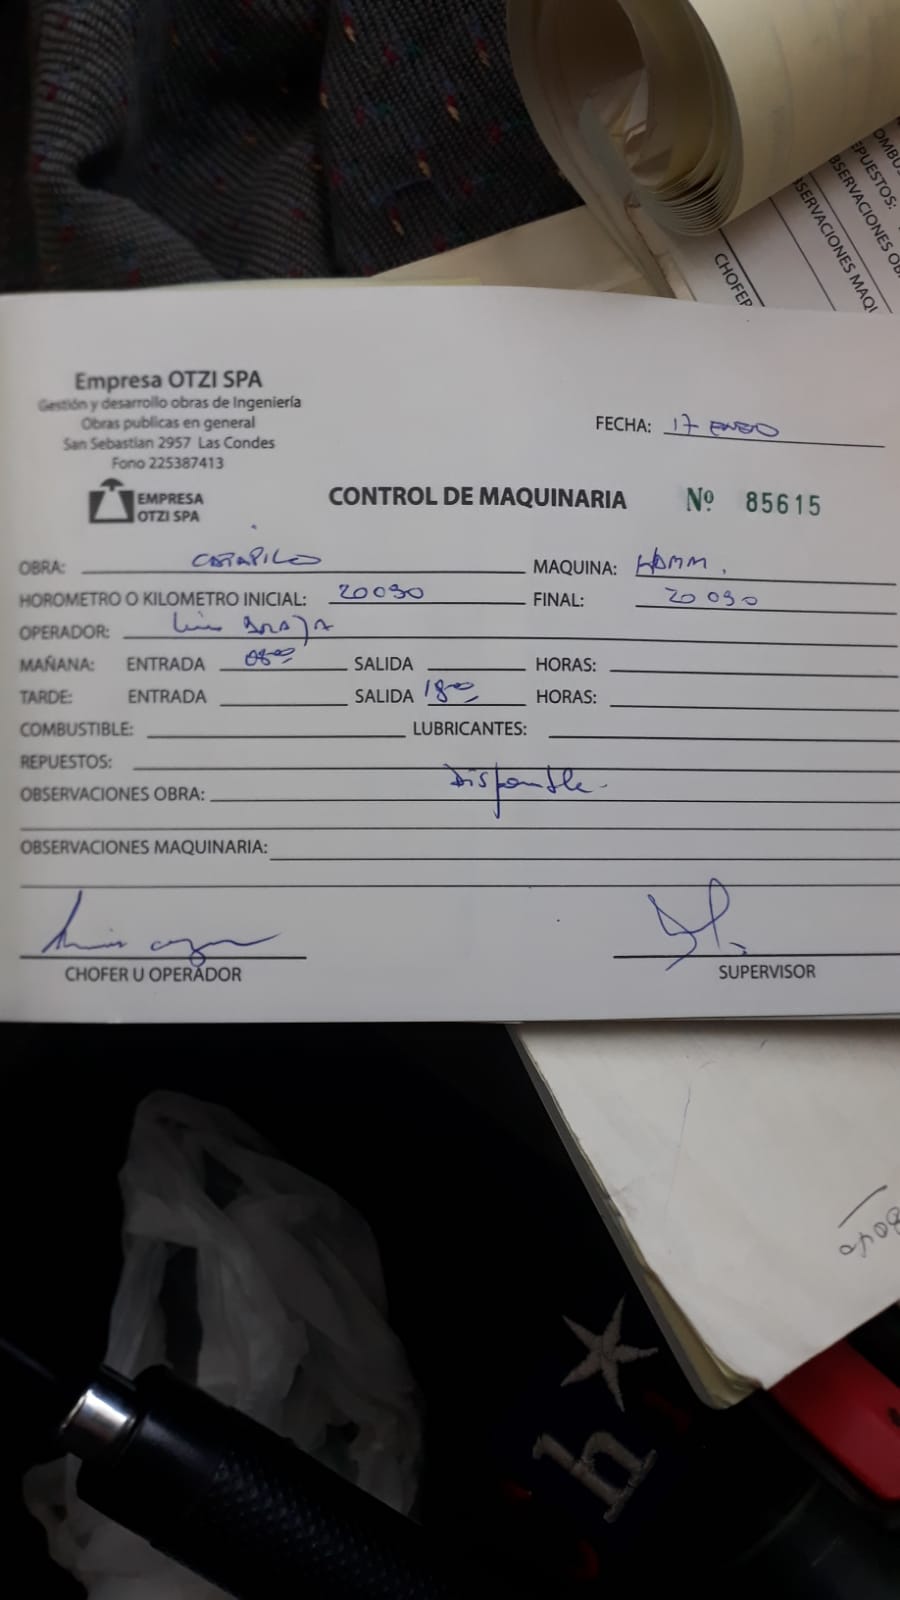 OMBUS
EPUESTOS:
BSERVACIONES OB
SERVACIONES MAQU
CHOFER
Empresa OTZI SPA
Gestión y desarrollo obras de Ingeniería
Obras publicas en general
San Sebastian 2957 Las Condes
Fono 225387413
FECHA: 17 ENERO
EMPRESA
OTZI SPA
CONTROL DE MAQUINARIA Nº 85615
OBRA: CATAPILCO MAQUINA: HAMM.
HOROMETRO O KILOMETRO INICIAL: 20090 FINAL: 20090
OPERADOR: Luis
MAÑANA: ENTRADA 08:00 SALIDA HORAS:
TARDE: ENTRADA SALIDA 18:00 HORAS:
COMBUSTIBLE: LUBRICANTES:
REPUESTOS:
OBSERVACIONES OBRA: Disponible.
OBSERVACIONES MAQUINARIA:
CHOFER U OPERADOR SUPERVISOR
h